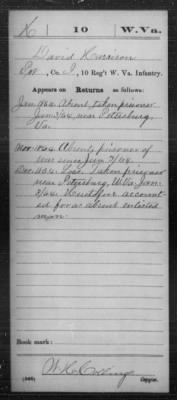 K | 10 | W.Va.
David Harrison
, Co. , 10 Reg't W. Va. Infantry.
Appears on Returns as follows:
Jan. 1864. Absent, taken prisoner
Jan. 3/64, near Petersburg,
Va.
Nov. 1864. Absent, prisoner of
war since Jan. 3/64.
Dec. 1864. Loss. Taken prisoner
near Petersburg, W.Va. Jan.
3/64. Heretofore account-
ed for as absent enlisted
man.
Book mark:
Copyist.